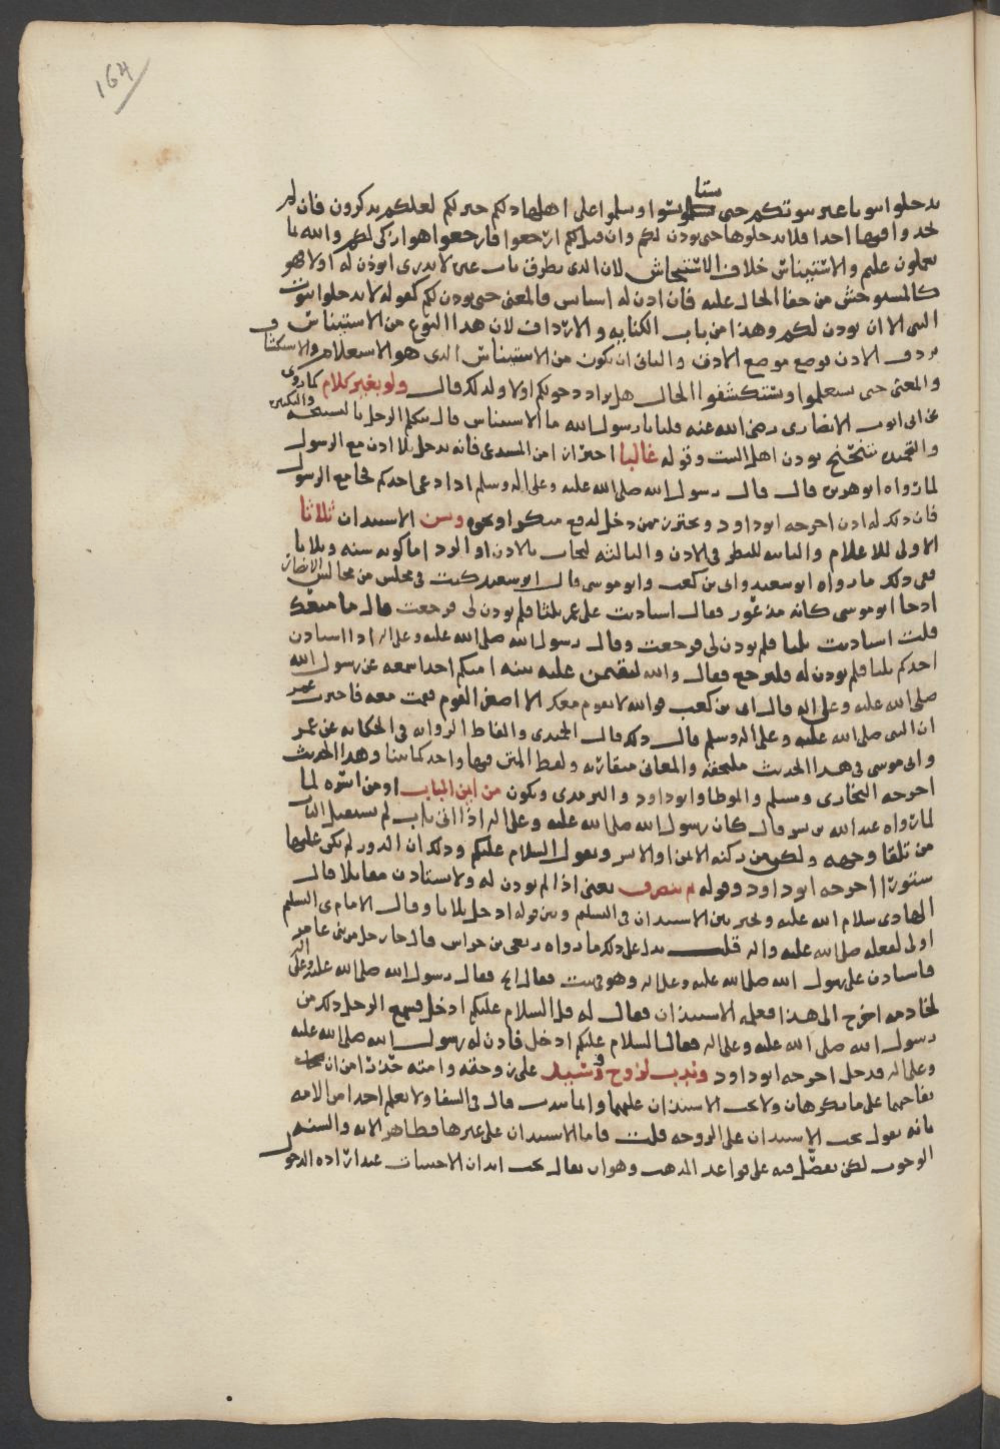 164
تدخلوا بيوتا غير بيوتكم حتى تستأنسوا وتسلموا على أهلها ذلكم خير لكم لعلكم تذكرون فان لم
تجدوا فيها احدا فلا تدخلوها حتى يوذن لكم وان قيل لكم ارجعوا فارجعوا هو ازكى لكم والله بما
تعملون عليم والاستيناس خلاف الاستيحاش لان الذي يطرق باب غيره لا يدري ايوذن له اولا فهو
كالمستوحش من خفا الحال عليه فان اذن له استانس فالمعنى حتى يوذن لكم كقوله لا تدخلوا بيوت
النبي الا ان يوذن لكم وهذا من باب الكنايه والارداف لان هذا النوع من الاستيناس
يردف الاذن فوضع موضع الاذن والثاني ان يكون من الاستيناس الذي هو الاستعلام والاستكشاف
والمعنى حتى تستعلموا وتستكشفوا الحال هل يراد دخولكم اولا ولذلك قال ولو بغير كلام كما روي
عن ابي ايوب الانصاري رضي الله عنه قلنا يا رسول الله ما الاستيناس قال يتكلم الرجل بالتسبيحه والتكبيره
والتحميده يتنحنح يوذن اهل البيت وقوله غالبا احتراز من المستدعى فانه يدخل بلا اذن مع الرسول
لما رواه ابو هريره قال قال رسول الله صلى الله عليه وعلى اله وسلم اذا دعي احدكم فجا مع الرسول
فان ذلك له اذن اخرجه ابو داود ويحترز ممن دخل لدفع منكر او نحوه وسن الاستيذان ثلاثا
الاولى للاعلام والثانيه للنظر في الاذن والثالثه ليجاب بالاذن او الرد اما كونه سنه وثلاثا
ففي ذلك ما رواه ابو سعيد وابي بن كعب وابو موسى قال ابو سعيد كنت في مجلس من مجالس الانصار
اذ جا ابو موسى كانه مذعور فقال استاذنت على عمر ثلثا فلم يوذن لي فرجعت قال ما منعك
قلت استاذنت ثلثا فلم يوذن لي فرجعت وقال رسول الله صلى الله عليه وعلى اله اذا استاذن
احدكم ثلثا فلم يوذن له فليرجع فقال والله لتقيمن عليه بينه امنكم احد سمعه عن رسول الله
صلى الله عليه وعلى اله قال ابي بن كعب فوالله لا يقوم معك الا اصغر القوم فقمت معه فاخبرت عمر
ان النبي صلى الله عليه وعلى اله وسلم قال ذلك قال الحميدي والفاظ الرواه في الحكايه عن عمر
وابي موسى في هذا الحديث مختلفه والمعاني متقاربه ولفظ المتن فيها واحد كما بينا وهذا الحديث
اخرجه البخاري ومسلم والموطا وابو داود والترمذي ويكون من ايمن الباب او من ايسره لما
لما رواه عبد الله بن بسر قال كان رسول الله صلى الله عليه وعلى اله اذا اتى باب لم يستقبل الباب
من تلقا وجهه ولكن من ركنه الايمن او الايسر ويقول السلام عليكم وذلك ان الدور لم تكن عليها
ستور اخرجه ابو داود وقوله ثم ينصرف يعني اذا لم يوذن له ولا يستاذن مقابلا قال
الهادي سلام الله عليه ويخير بين الاستيذان في التسليم وبين قوله ادخل ثلاثا وقال الامام ي التسليم
اولى لفعله صلى الله عليه واله قلت يدل على ذلك ما رواه ربعي بن حراش قال جا رجل من بني عامر
فاستاذن على رسول الله صلى الله عليه وعلى اله وهو في بيت فقال االج فقال رسول الله صلى الله عليه وعلى اله
لخادمه اخرج الى هذا فعلمه الاستيذان فقال له قل السلام عليكم ادخل فسمع الرجل ذلك من
رسول الله صلى الله عليه وعلى اله فقال السلام عليكم ادخل فاذن له رسول الله صلى الله عليه
وعلى اله فدخل اخرجه ابو داود وندب لزوج وسيد على زوجته وامته حذرا من ان
يفاجيهما على ما يكرهان ولا يجب الاستيذان عليهما وانما يندب قال في الشفا ولا نعلم احدا من الامه
بانه يقول يجب الاستيذان على الزوجه قلت فاما الاستيذان على غيرها فظاهر الايه والسنه
الوجوب لكن يفصل فيه على قواعد المذهب وهو ان يقال يجب ايذان الاجنبيات عند اراده الدخول